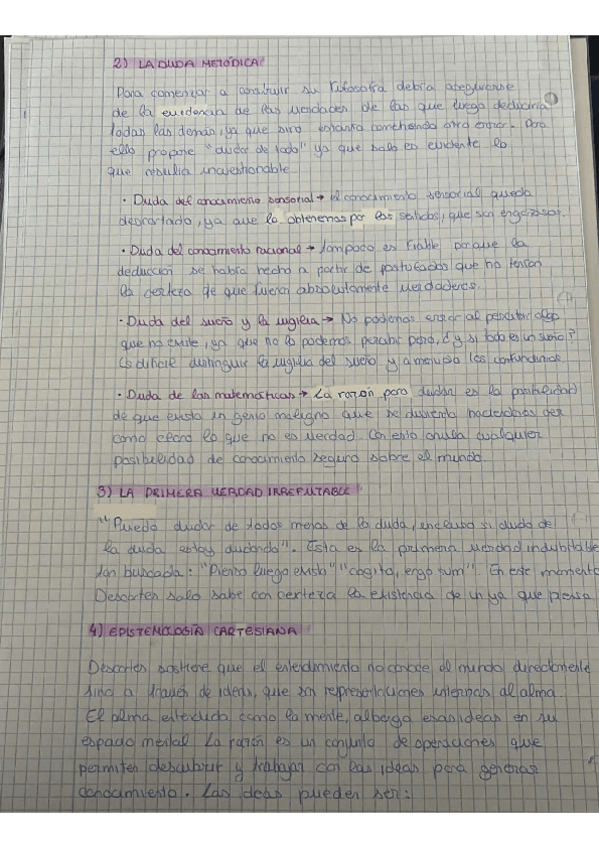 2) LA DUDA METÓDICA
Para comenzar a construir su filosofía debía asegurarse
de la evidencia de las verdades de las que luego deduciría
todas las demás, ya que sino estaría cometiendo otro error. Para
ello propone "dudar de todo" ya que solo es evidente lo
que resulta incuestionable.
· Duda del conocimiento sensorial → el conocimiento sensorial queda
descartado, ya que lo obtenemos por los sentidos, que son engañosos.
· Duda del conocimiento racional → tampoco es fiable porque la
deducción se había hecho a partir de postulados que no tenían
la certeza de que fueran absolutamente verdaderos.
· Duda del sueño y la vigilia → No podemos errar al percibir algo
que no existe, ya que no lo podemos percibir pero, ¿y si todo es un sueño?
Es difícil distinguir la vigilia del sueño y a menudo los confundimos.
· Duda de las matemáticas → La razón para dudar es la posibilidad
de que exista un genio maligno que se divierta haciéndonos ver
como claro lo que no es verdad. Con esto anula cualquier
posibilidad de conocimiento seguro sobre el mundo.
3) LA PRIMERA VERDAD IRREFUTABLE
"Puedo dudar de todos menos de la duda, incluso si dudo de
la duda estoy dudando". Esta es la primera verdad indubitable
tan buscada: "Pienso luego existo" "cogito, ergo sum". En este momento
Descartes solo sabe con certeza la existencia de un ya que piensa
4) EPISTEMOLOGÍA CARTESIANA
Descartes sostiene que el entendimiento no conoce al mundo directamente
sino a través de ideas, que son representaciones internas al alma.
El alma entendida como la mente, alberga esas ideas en su
espacio mental. La razón es un conjunto de operaciones que
permiten descubrir y trabajar con las ideas para generar
conocimiento. Las ideas pueden ser: